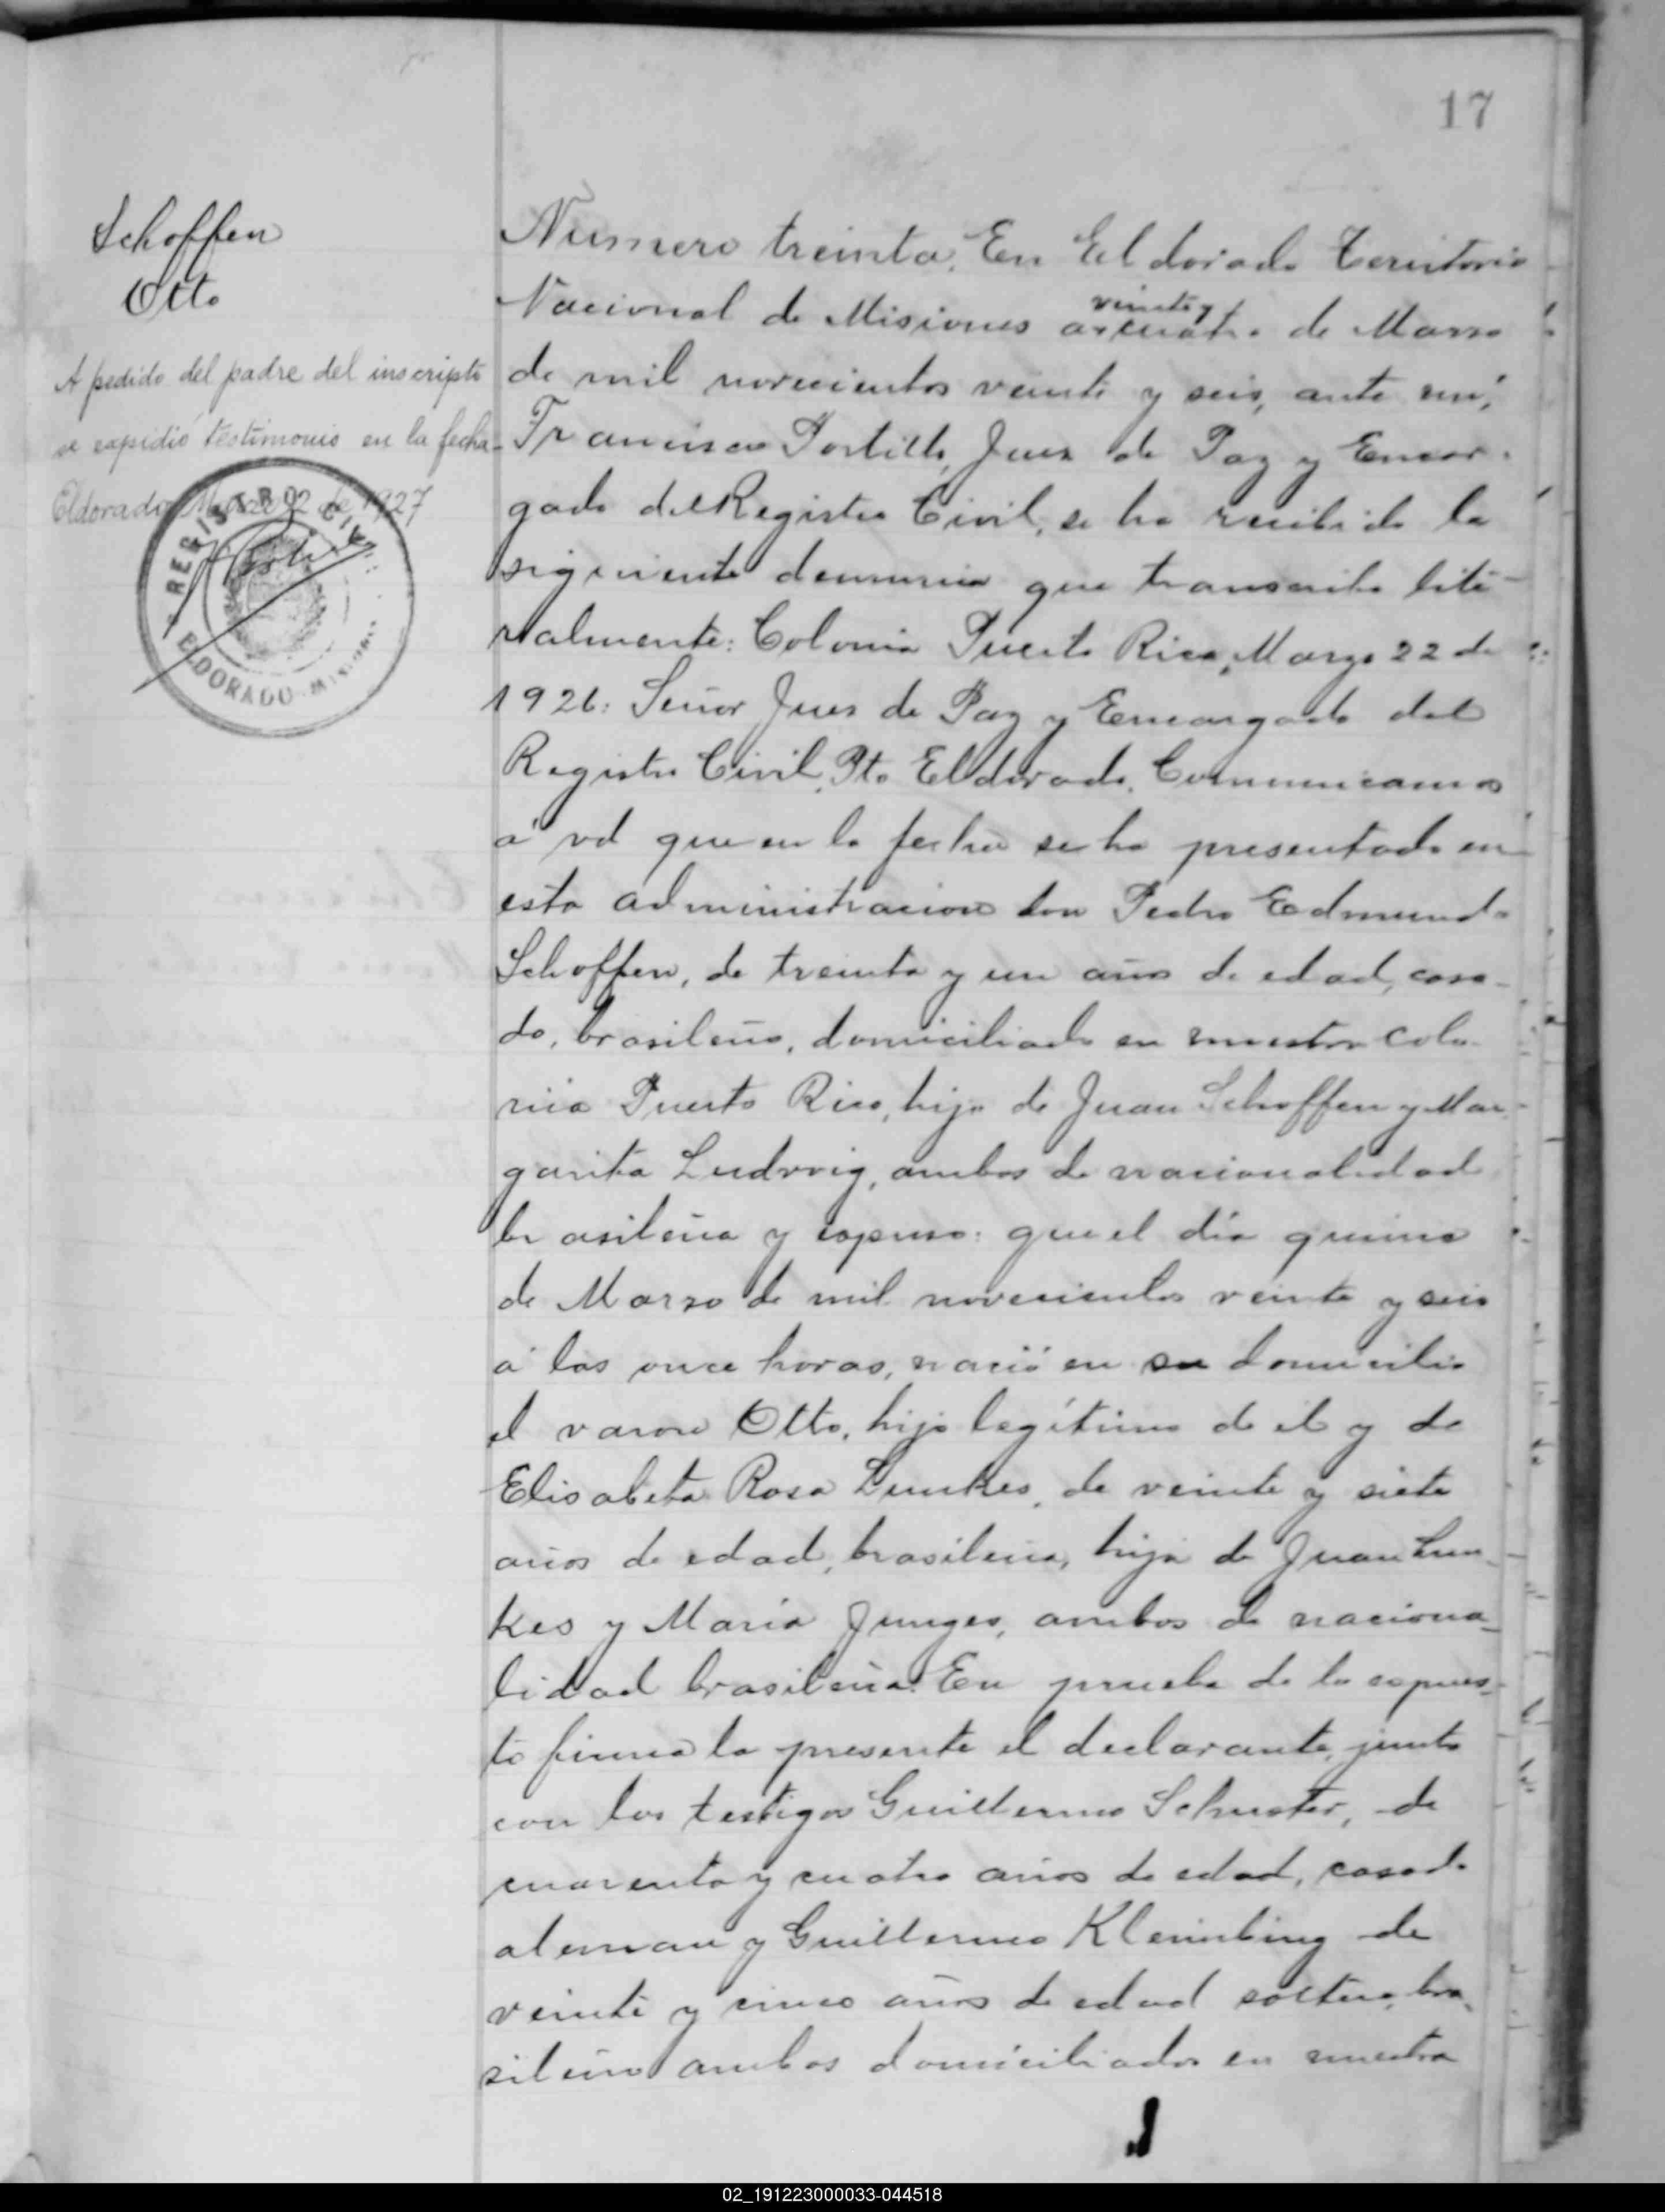 17
Schoffen
Otto
A pedido del padre del inscripto
se expidió testimonio en la fecha.
Eldorado, Marzo 2 de 1927
REGISTRO CIVIL
ELDORADO
Numero treinta. En Eldorado Territorio
Nacional de Misiones a veinte y cuatro de Marzo
de mil novecientos veinte y seis, ante mi,
Francisco Portillo, Juez de Paz y Encar-
gado del Registro Civil, se ha recibido la
siguiente denuncia que transcribo lite-
ralmente: Colonia Puerto Rico, Marzo 22 de
1926: Señor Juez de Paz y Encargado del
Registro Civil, Pto Eldorado. Comunicamos
a vd que en la fecha se ha presentado en
esta administracion don Pedro Edmundo
Schoffen, de treinta y un años de edad, casa-
do, brasileño, domiciliado en nuestra colo-
nia Puerto Rico, hijo de Juan Schoffen y Mar-
garita Ludwig, ambos de nacionalidad
brasileña y expuso: que el día quince
de Marzo de mil novecientos veinte y seis
a las once horas, nació en su domicilio
el varon Otto, hijo legítimo de él y de
Elisabeta Rosa Lunkes, de veinte y siete
años de edad, brasileña, hija de Juan Lun-
kes y María Junges, ambos de naciona-
lidad brasileña. En prueba de lo expues-
to firma la presente el declarante, junto
con los testigos Guillermo Schuster, de
cuarenta y cuatro años de edad, casado
aleman y Guillermo Kleinubing de
veinte y cinco años de edad soltero, bra-
sileño ambos domiciliados en nuestra
02_191223000033-044518